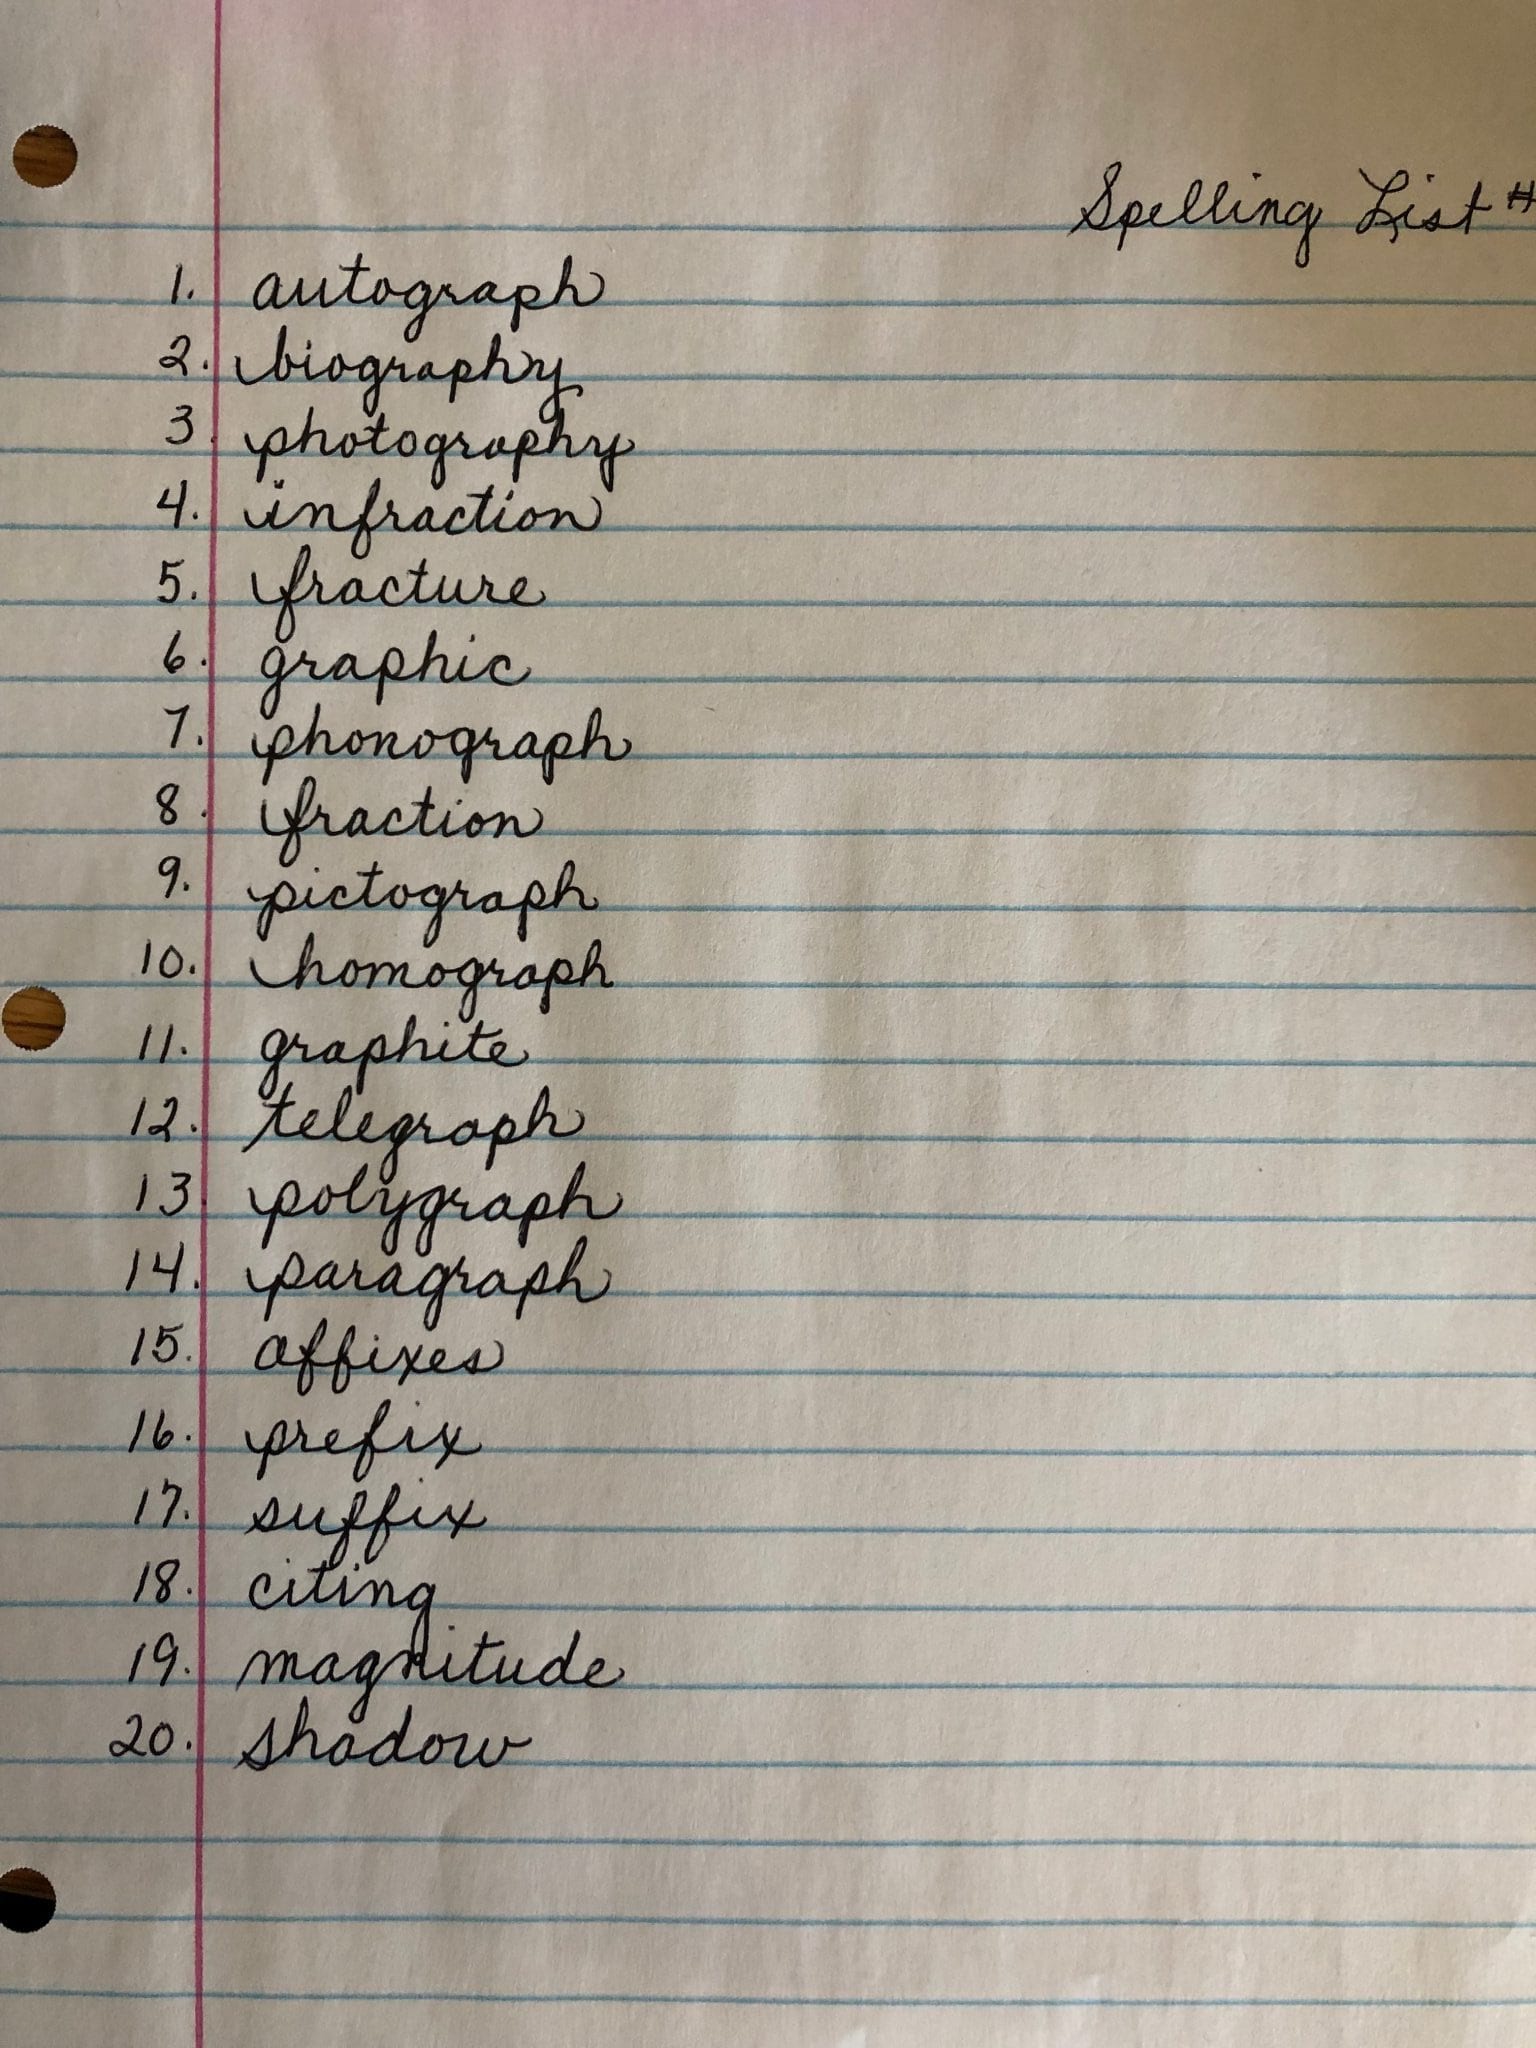 Spelling List #
1. autograph
2. biography
3. photography
4. infraction
5. fracture
6. graphic
7. phonograph
8. fraction
9. pictograph
10. homograph
11. graphite
12. telegraph
13. polygraph
14. paragraph
15. affixes
16. prefix
17. suffix
18. citing
19. magnitude
20. shadow